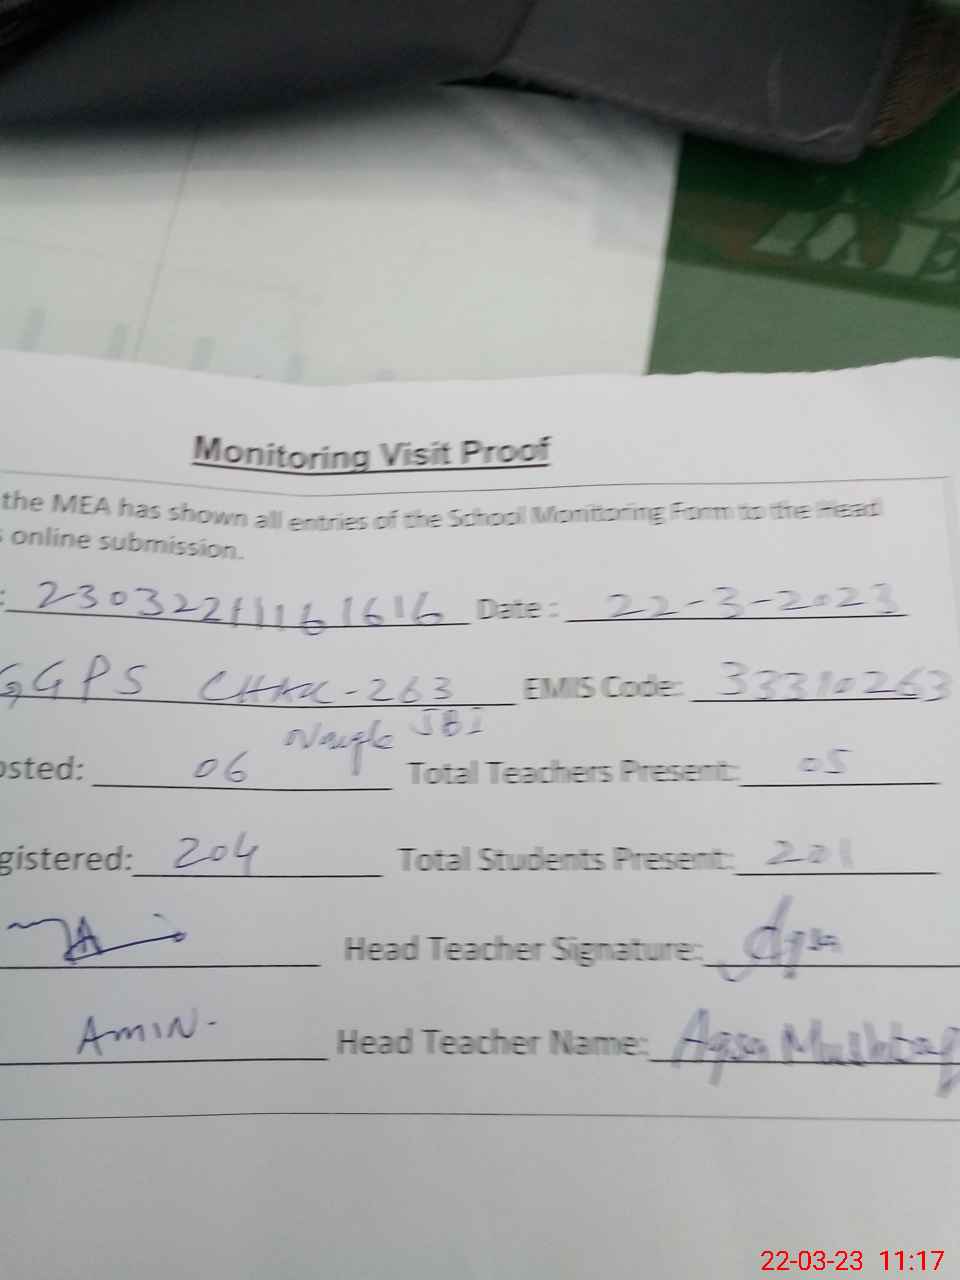 Monitoring Visit Proof
the MEA has shown all entries of the School Monitoring Form to the Head
online submission.
: 23032211161616 Date : 22-3-2023
GGPS CHAK-263 EMIS Code: 33310263
JBI
osted: 06 Total Teachers Present: 05
gistered: 204 Total Students Present: 201
Head Teacher Signature: Aqsa
AMIN. Head Teacher Name: Aqsa Mushtaq
22-03-23 11:17